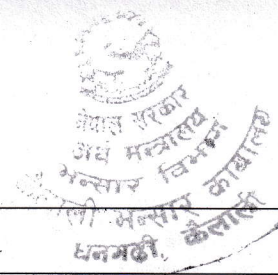 नेपाल सरकार
अर्थ मन्त्रालय
भन्सार विभाग
भन्सार कार्यालय
धनगढी, कैलाली